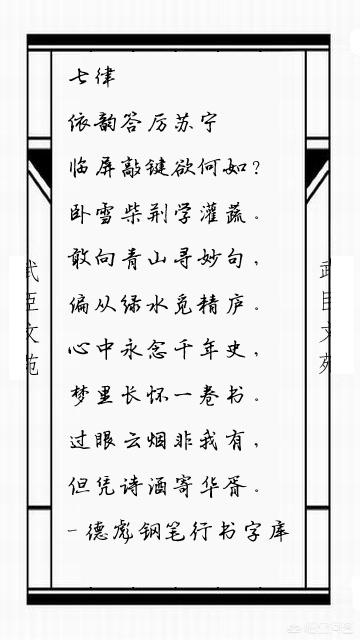 七律
依韵答厉苏宁
临屏敲键欲何如？
卧雪柴荆学灌蔬。
敢向青山寻妙句，
偏从绿水觅精庐。
心中永念千年史，
梦里长怀一卷书。
过眼云烟非我有，
但凭诗酒寄华胥。
-德彪钢笔行书字库
武臣文苑
武臣文苑